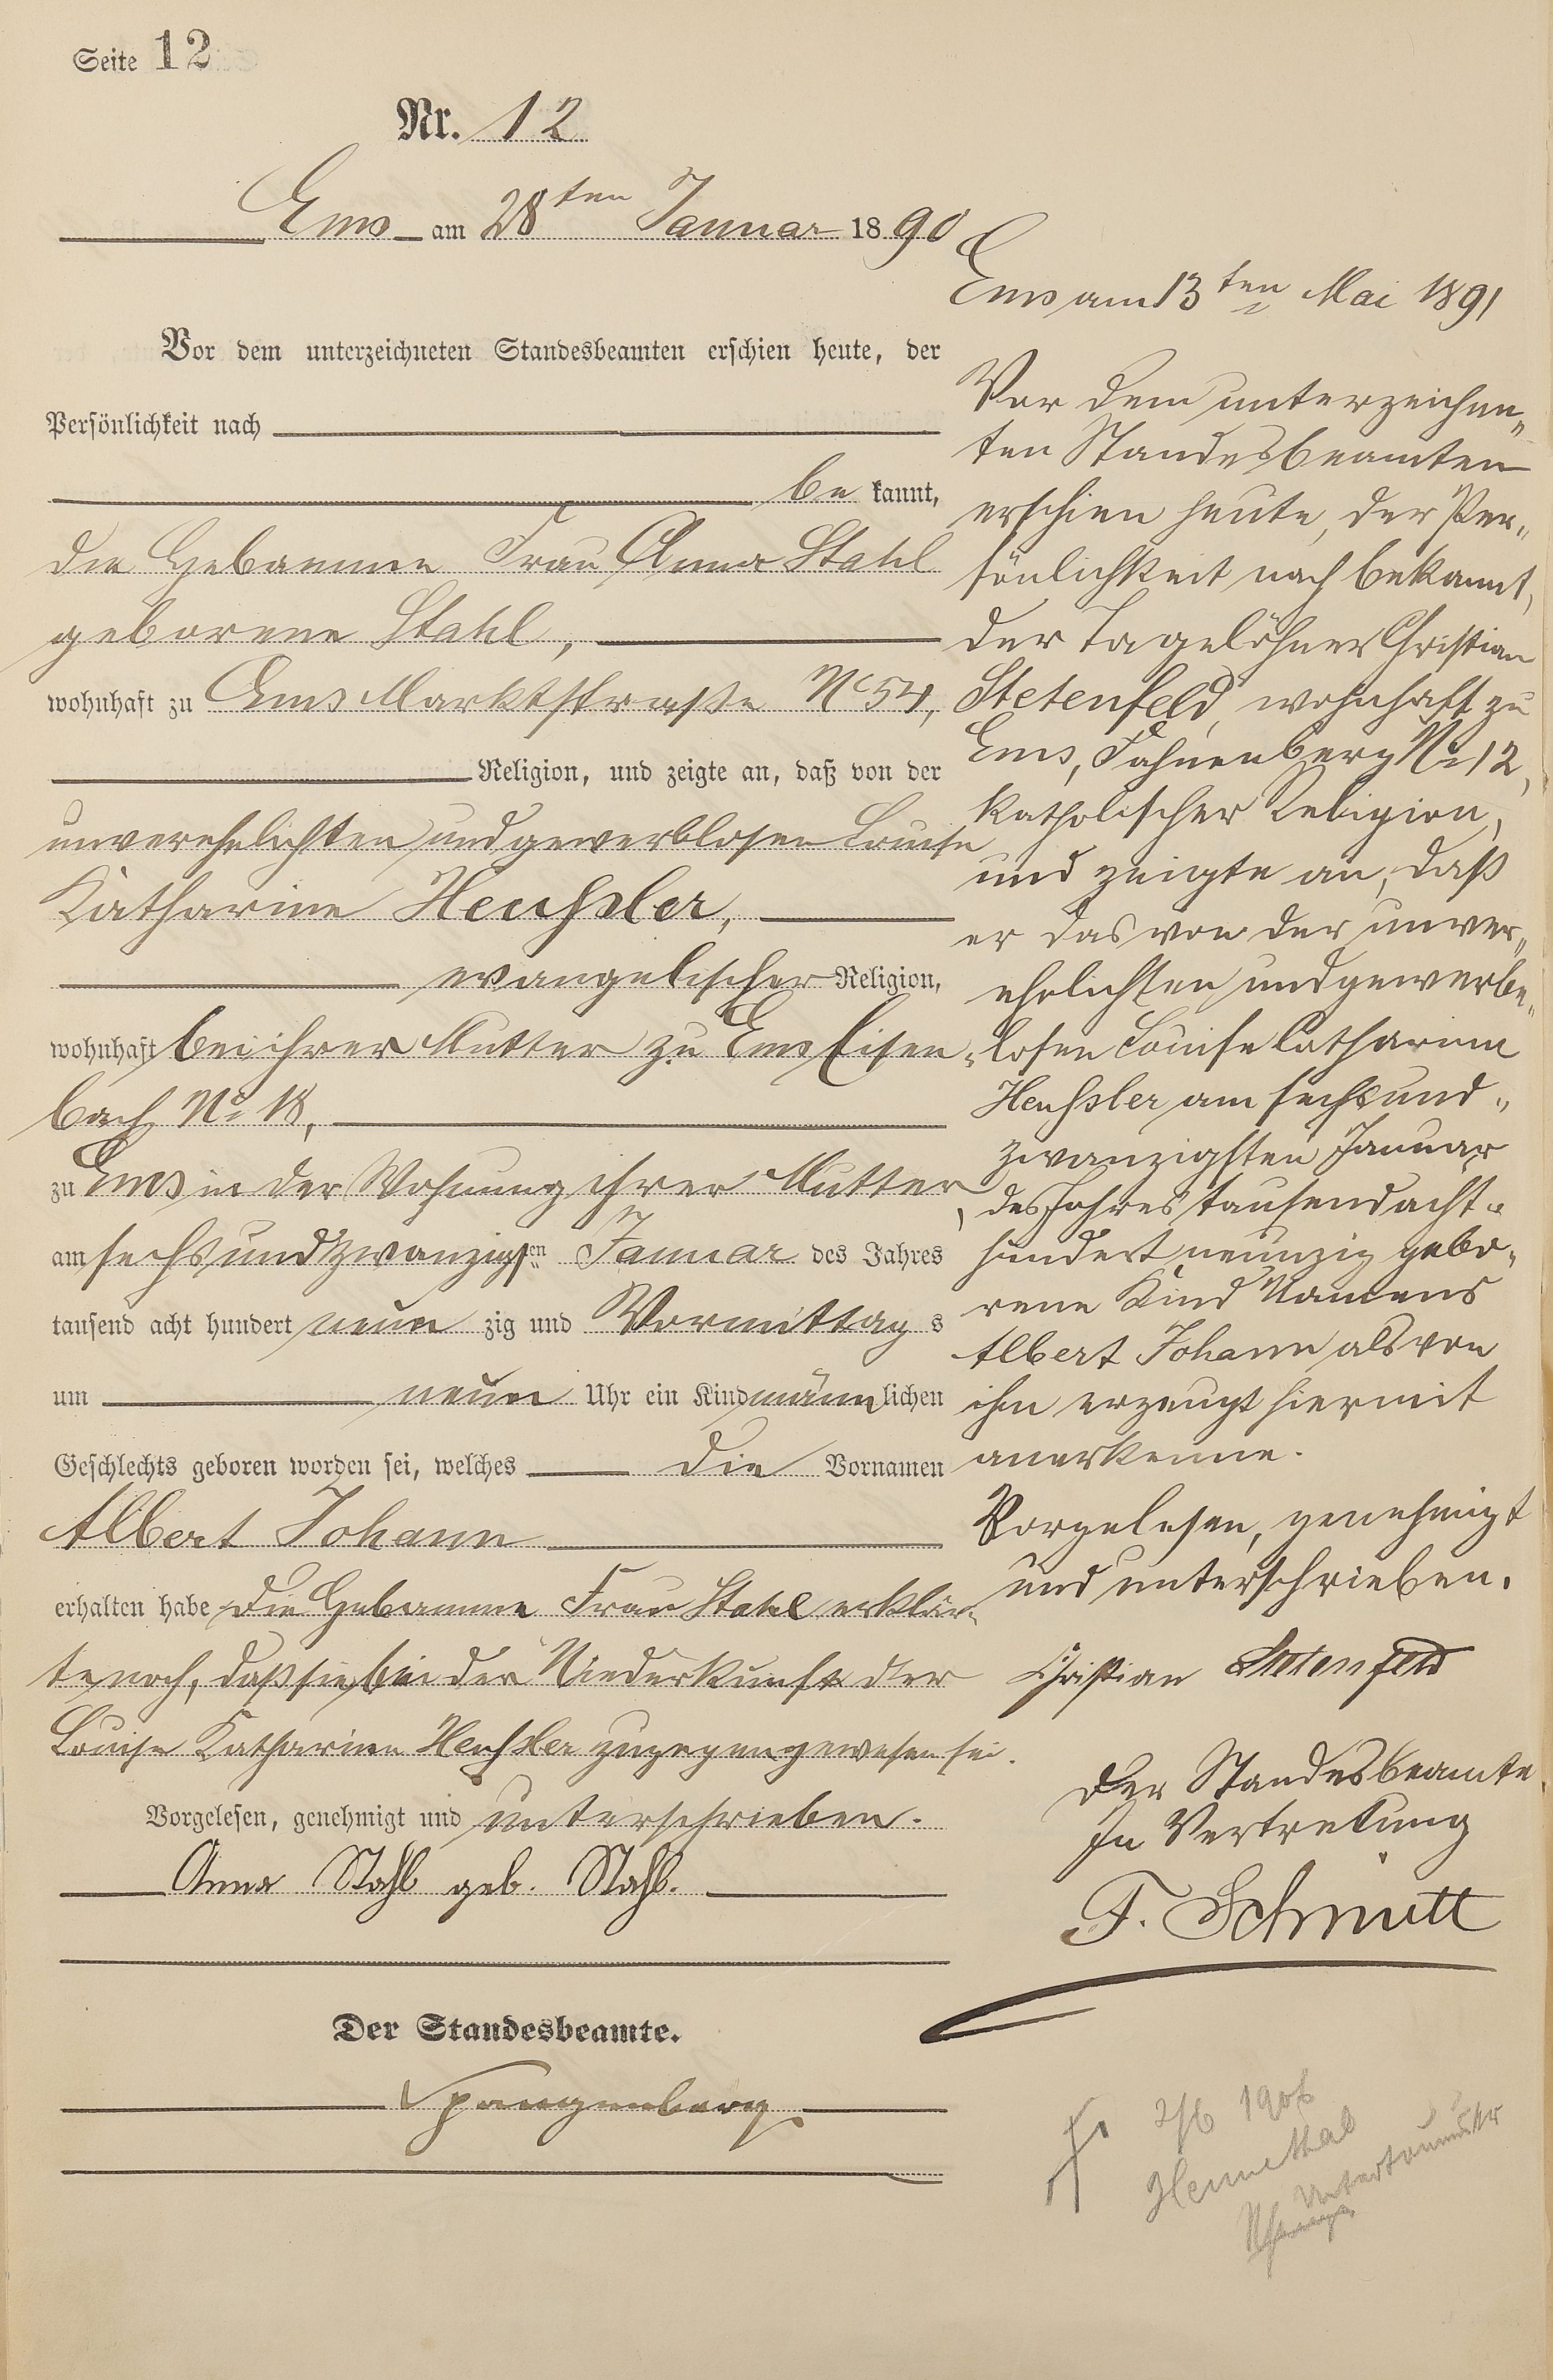 Seite 12
Nr. 12
Ems am 28ten Januar 1890
Vor dem unterzeichneten Standesbeamten erschien heute, der
Persönlichkeit nach
be kannt,
die Hebamme Frau Anna Stahl
geborene Stahl,
wohnhaft zu Ems Marktstraße No 54,
Religion, und zeigte an, daß von der
unverehelichten und gewerblosen Louise
Katharine Heußler,
evangelischer Religion,
wohnhaft bei ihrer Mutter zu Ems Eisen-
bach No 18,
zu Ems in der Wohnung ihrer Mutter,
am sechsundzwanzigsten Januar des Jahres
tausend acht hundert neun zig und Vormittag s
um neun Uhr ein Kind männlichen
Geschlechts geboren worden sei, welches die Vornamen
Albert Johann
erhalten habe die Hebamme Frau Stahl erklär-
te noch, daß sie bei der Niederkunft der
Louise Katharine Heußler zugegen gewesen sei.
Vorgelesen, genehmigt und unterschrieben.
Anna Stahl geb. Stahl.
Der Standesbeamte.
Spangenberg
Ems am 13ten Mai 1891
Vor dem unterzeichne„
ten Standesbeamten
erschien heute, der Per„
sönlichkeit nach bekannt,
der Tagelöhner Christian
Stetenfeld, wohnhaft zu
Ems, Fahnenberg No 12,
katholischer Religion,
und zeigte an, daß
er das von der unver„
ehelichten und gewerbe„
losen Louise Catharina
Heußler am sechsund„
zwanzigsten Januar
des Jahres tausendacht„
hundert neunzig gebo„
rene Kind Namens
Albert Johann als von
ihm erzeugt hiermit
anerkenne.
Vorgelesen, genehmigt
und unterschrieben.
Christian Stetenfeld
Der Standesbeamte.
In Vertretung
F. Schmitt
2/6 1906
Hennethal
Untertaunuskr